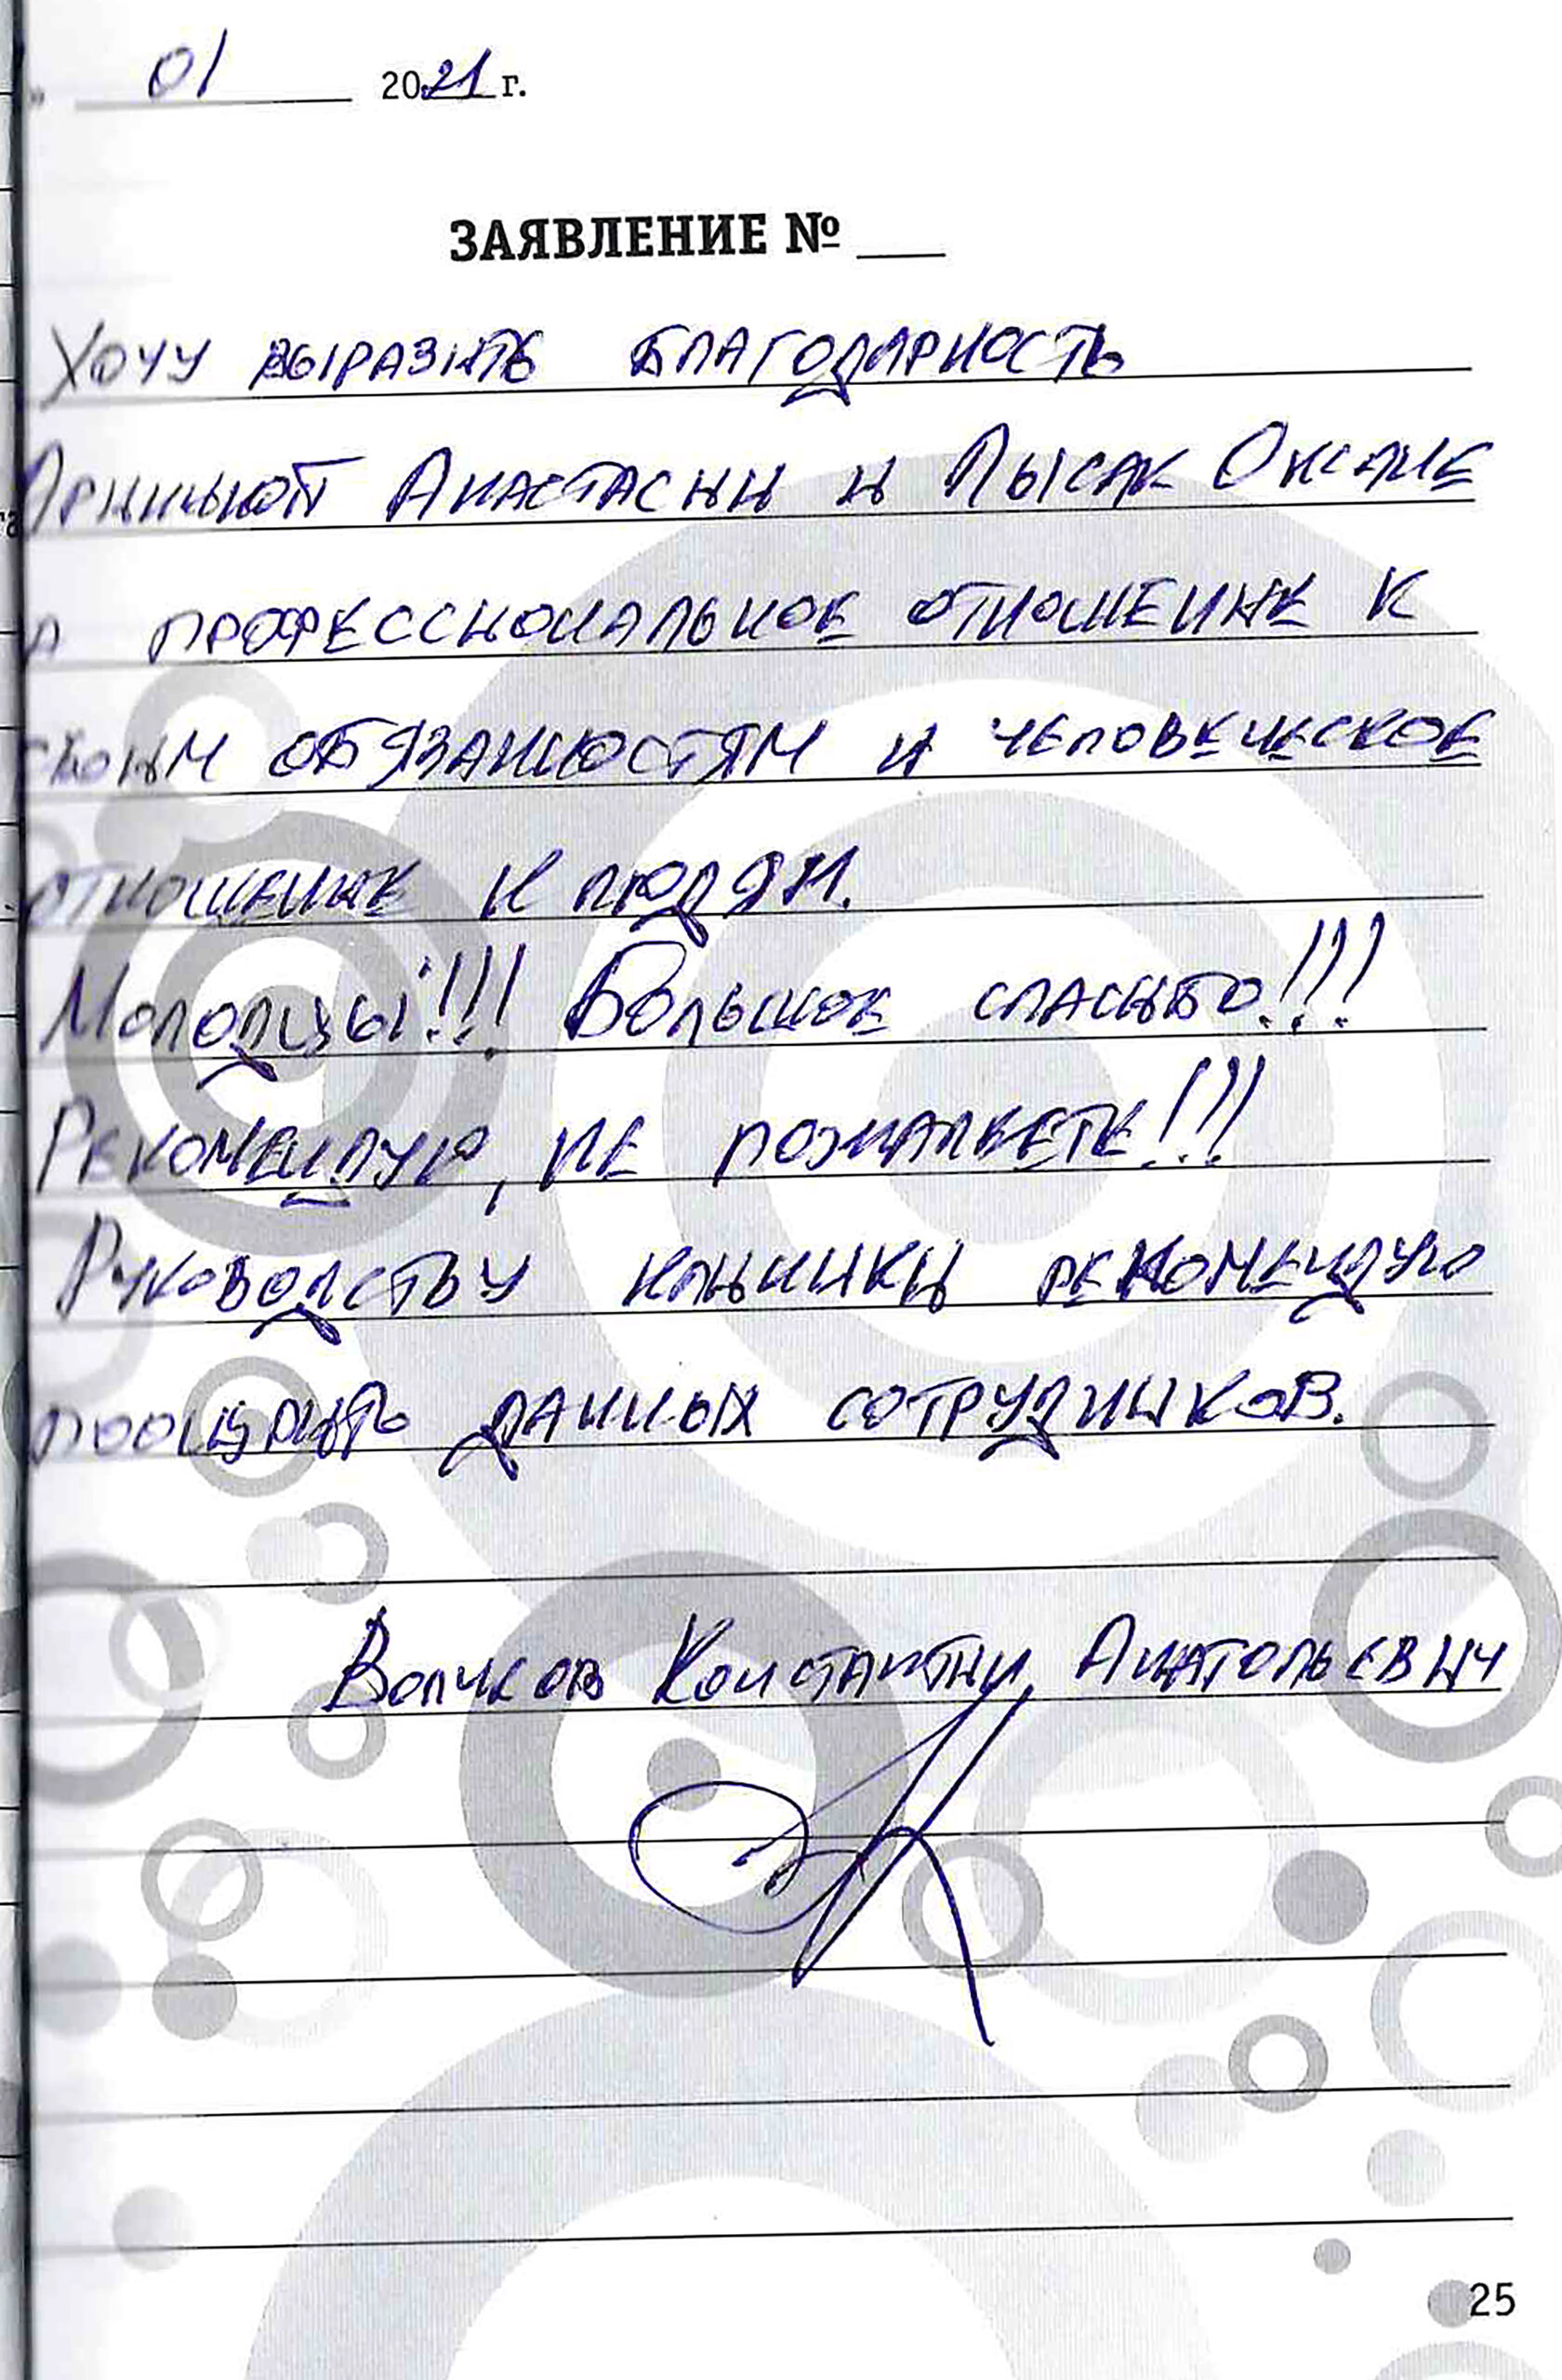 » 01 2021 г.
ЗАЯВЛЕНИЕ № ___
Хочу выразить благодарность
Анастасии и Лысак Оксане
профессиональное отношение к
своим обязанностям и человеческое
отношение к людям.
Молодцы!!! Большое спасибо!!!
Рекомендую, не пожалеете!!!
Руководству клиники рекомендую
поощрить данных сотрудников.
Волчков Константин Анатольевич
25